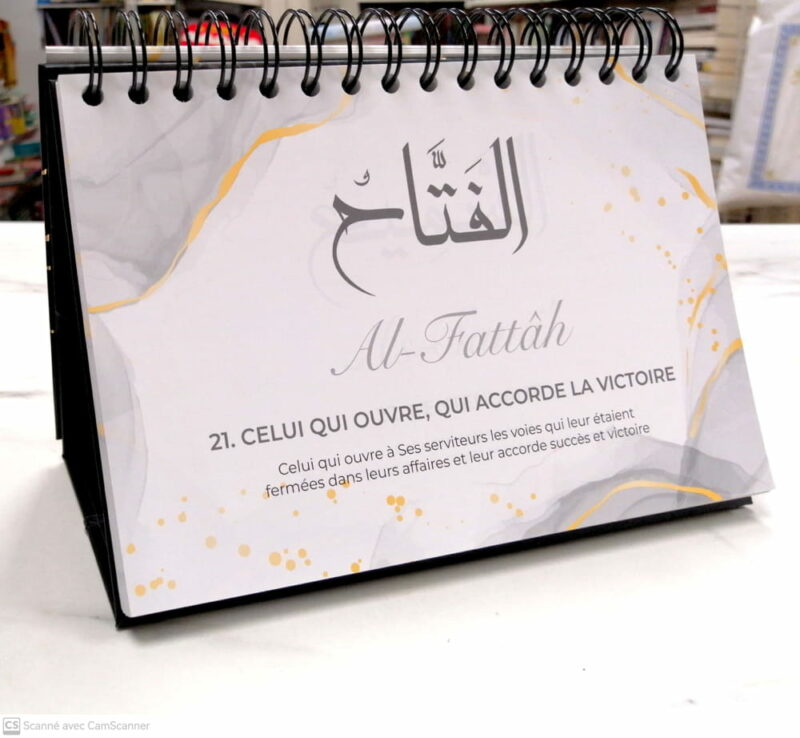 الفَتَّاحُ
Al-Fattâh
21. CELUI QUI OUVRE, QUI ACCORDE LA VICTOIRE
Celui qui ouvre à Ses serviteurs les voies qui leur étaient
fermées dans leurs affaires et leur accorde succès et victoire
CS Scanné avec CamScanner